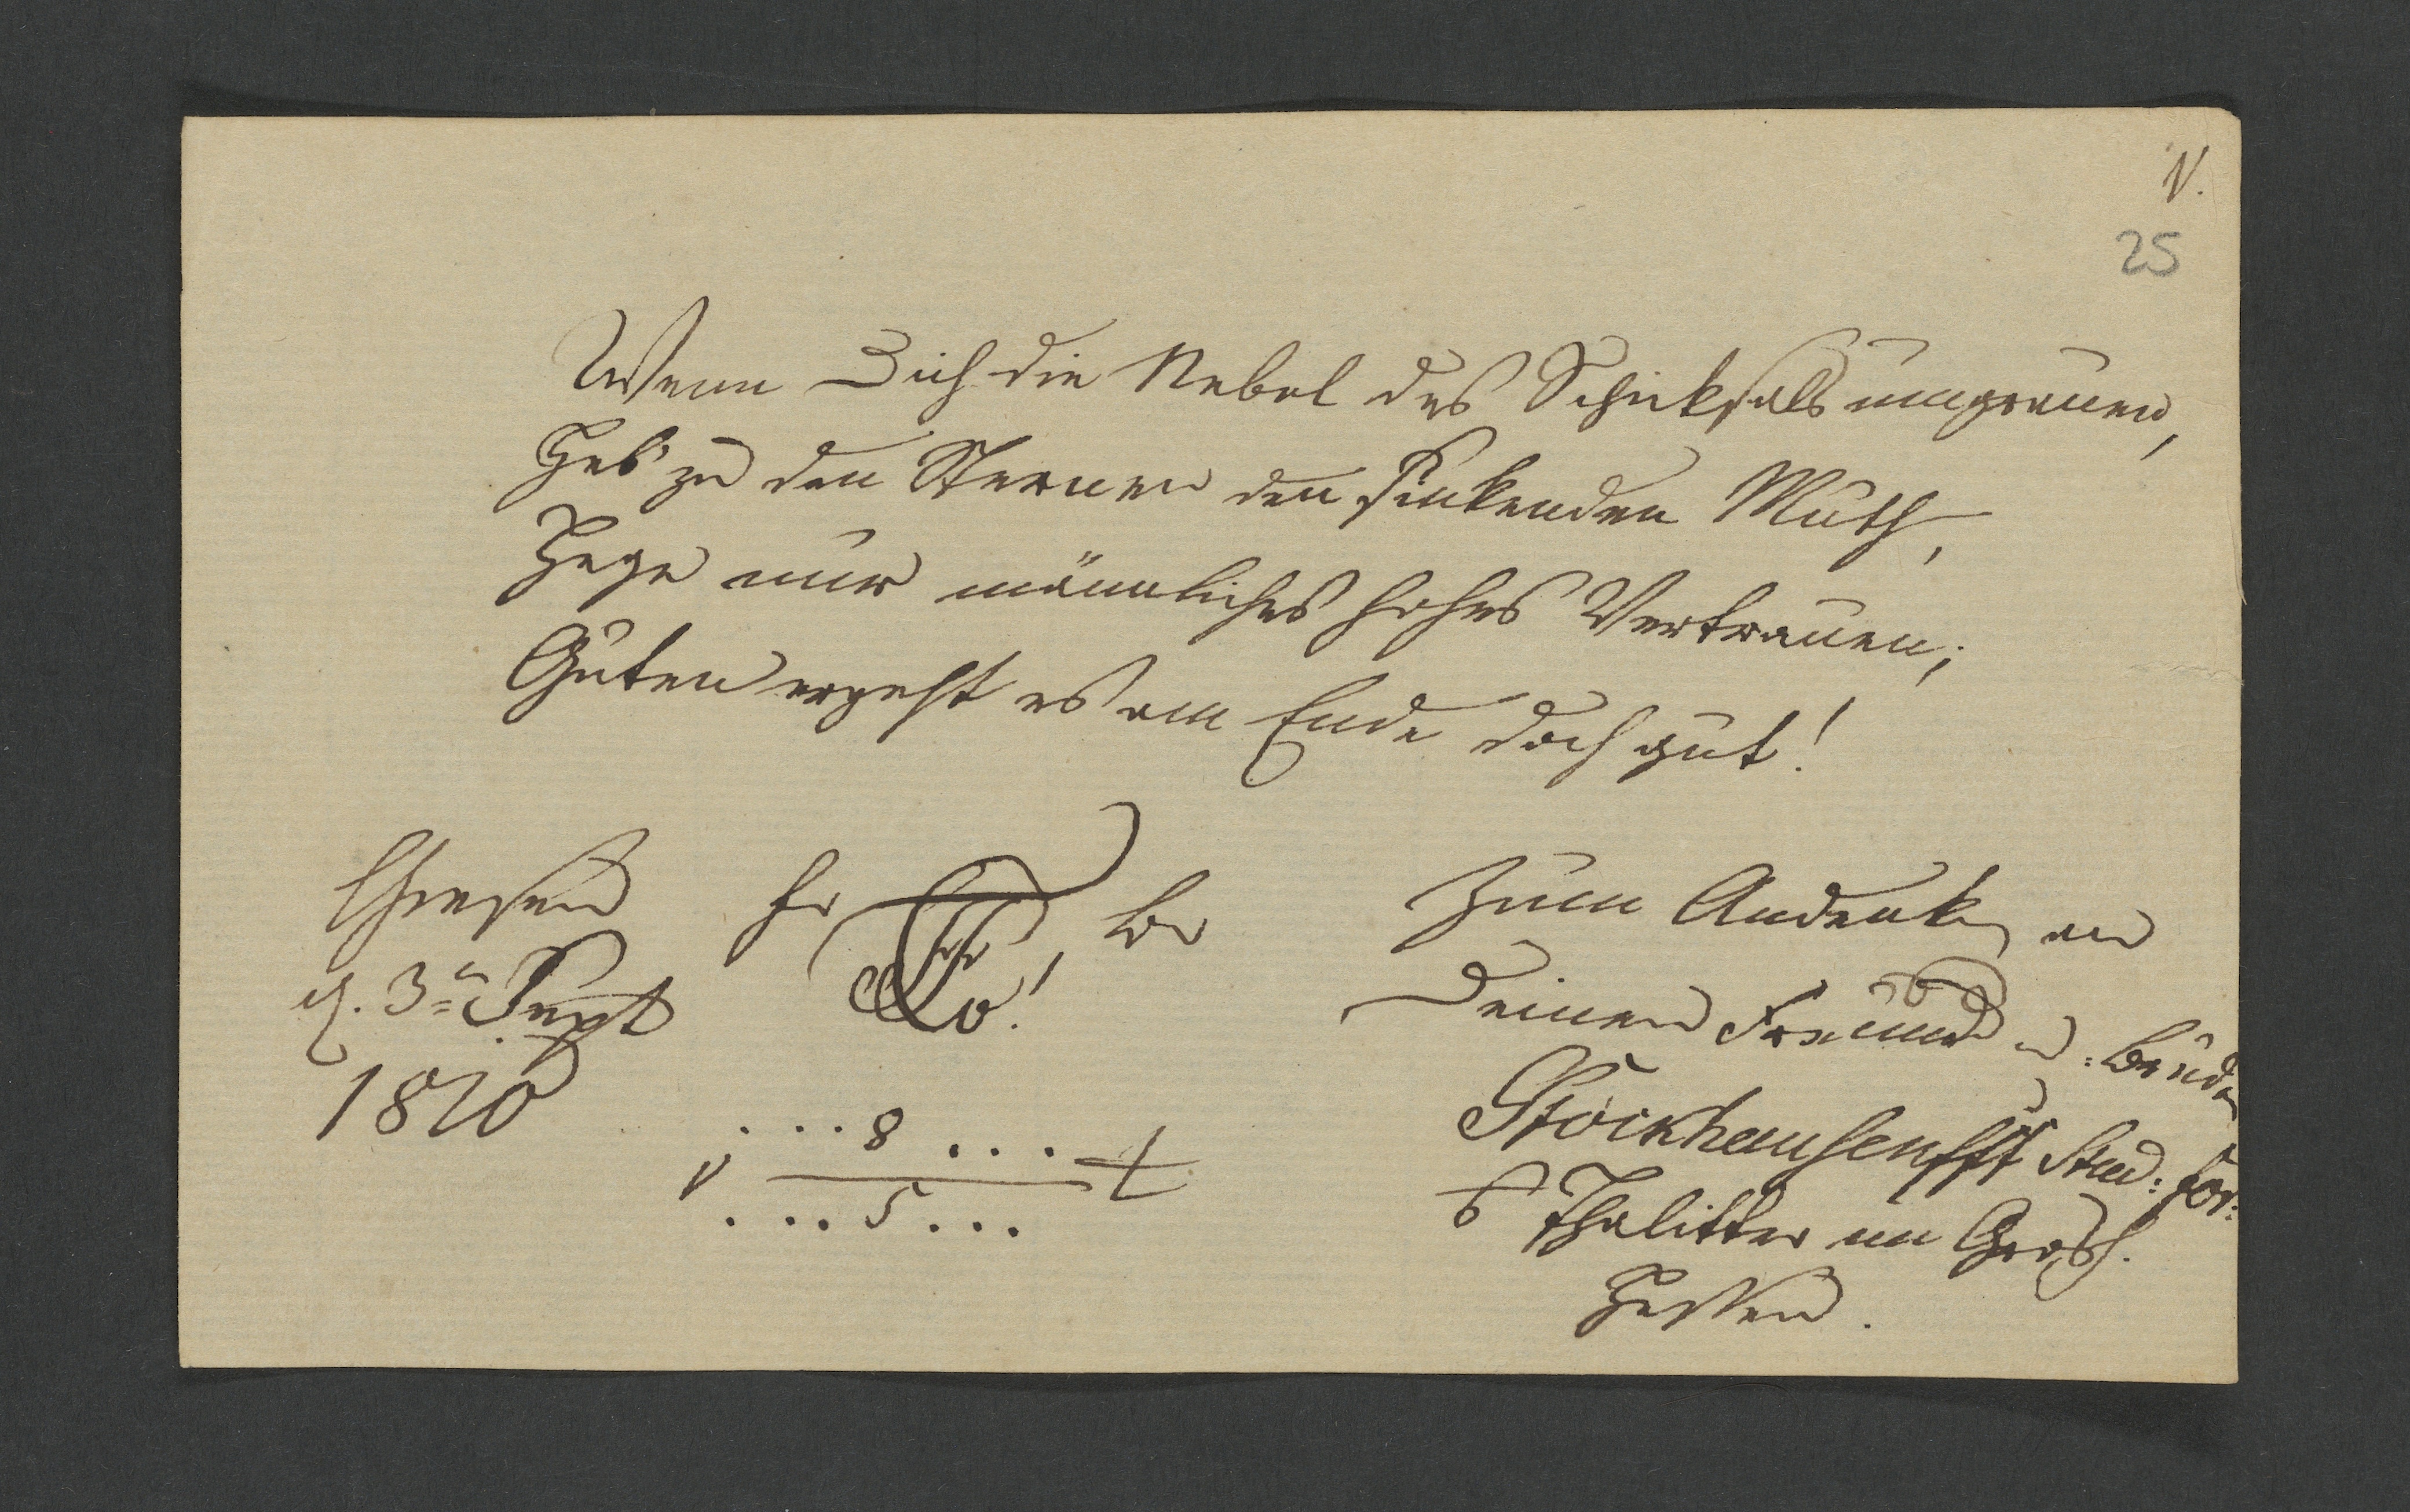 N.
25
Wenn Dich die Nebel des Schicksals umgrauen,
Heb' zu den Sternen den sinkenden Muth,
Hege nur männliches hohes Vertrauen;
Guten ergeht es am Ende doch gut!
Giesen
d. 3ⁿ Sept
1820
... 8 ...
... 5 ...
Zum Andenken an
Deinen Freund u. Bruder
Stockhausen Stud: for:
Thalitter im Grosh.
Hessen.